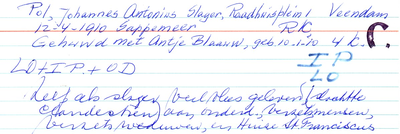 Pol, Johannes Antonius Slager, Raadhuisplein 1 Veendam
12-4-1910 Sappemeer RK
Gehuwd met Antje Blaauw, geb. 10-1-10 4 k. C.
IP
LO
LO + IP + OD
Heeft als slager veel vlees geleverd
clandestien aan onderd., verzetsmensen,
verzetsweduwen, en Huize St. Franciscus